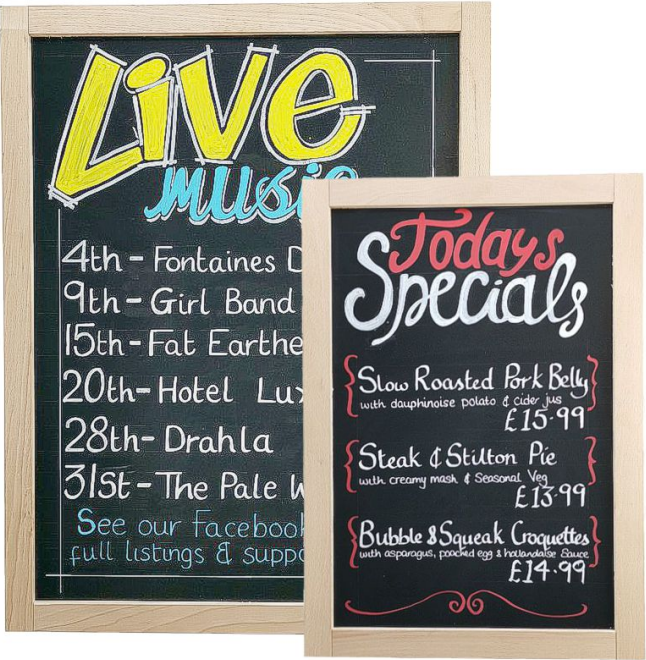 Live
music
4th - Fontaines D
9th - Girl Band
15th - Fat Earthe
20th - Hotel Lux
28th - Drahla
31st - The Pale W
See our Facebook
full listings & suppo
Todays
Specials
Slow Roasted Pork Belly
with dauphinoise polato & cider jus
£15.99
Steak & Stilton Pie
with creamy mash & Seasonal Veg
£13.99
Bubble & Squeak Croquettes
with asparagus, poached egg & hollandaise Sauce
£14.99